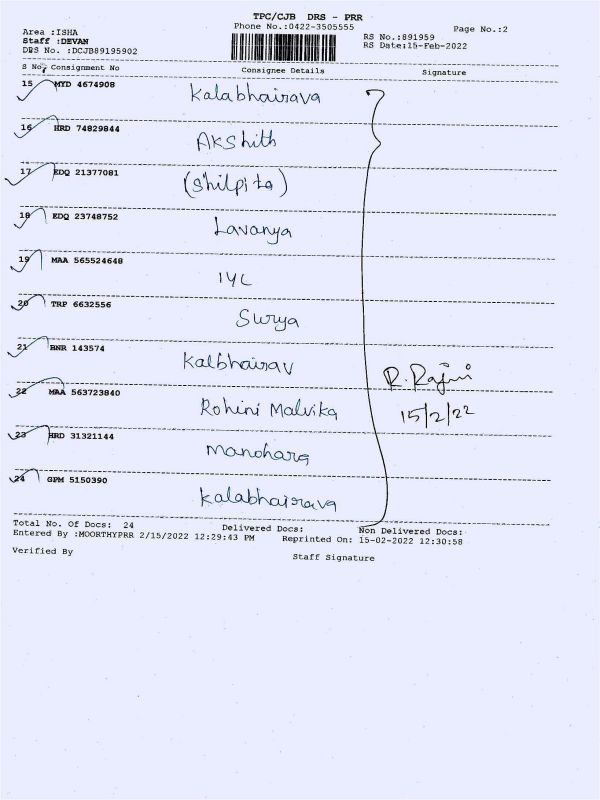 TPC/CJB DRS - PRR
Phone No.:0422-3505555
Page No.:2
Area :ISHA
Staff :DEVAN
DRS No. :DCJB89195902
RS No.:891959
RS Date:15-Feb-2022
S No. Consignment No Consignee Details Signature
15 MYD 4674908 Kalabhairava
16 HRD 74829844 Akshith
17 EDQ 21377081 (Shilpita)
18 EDQ 23748752 Lavanya
19 MAA 565524648 IYC
20 TRP 6632556 Surya
21 BNR 143574 Kalbhairav
R. Rajini
22 MAA 563723840 Rohini Malvika
15/2/22
23 HRD 31321144 Manohara
24 GPM 5150390 Kalabhairava
Total No. Of Docs: 24 Delivered Docs: Non Delivered Docs:
Entered By :MOORTHYPRR 2/15/2022 12:29:43 PM Reprinted On: 15-02-2022 12:30:58
Verified By Staff Signature